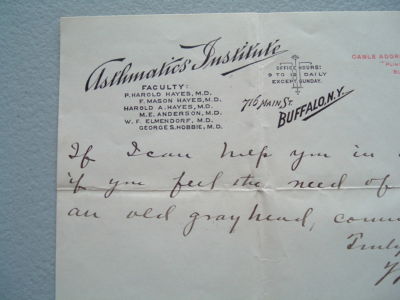 Asthmatics Institute
FACULTY:
P. HAROLD HAYES, M.D.
F. MASON HAYES, M.D.
HAROLD A. HAYES, M.D.
M.E. ANDERSON, M.D.
W. F. ELMENDORF, M.D.
GEORGE S. HOBBIE, M.D.
OFFICE HOURS:
9 TO 12 DAILY
EXCEPT SUNDAY.
716 MAIN ST.
BUFFALO, N.Y.
CABLE ADDRE
If I can help you in
if you feel the need of
an old grayhead,
Truly